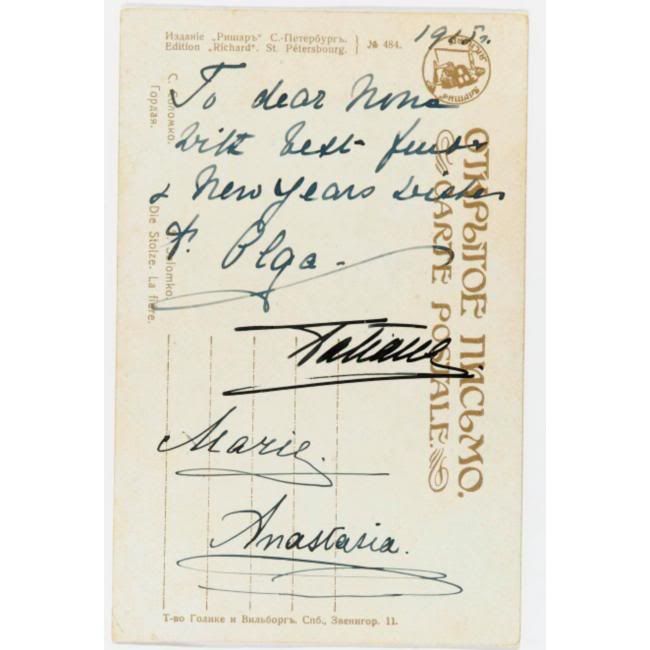 Изданіе „Ришаръ“ С.-Петербургъ.
Edition „Richard“. St. Pétersbourg.
№ 484.
1915 г.
To dear None
with best
& New Years wishes
Olga -
Tatiana.
Marie.
Anastasia.
С. Соломко.
Гордая.
Solomko.
Die Stolze. La fière.
ОТКРЫТОЕ ПИСЬМО.
CARTE POSTALE.
Т-во Голике и Вильборгъ. Спб., Звенигор. 11.